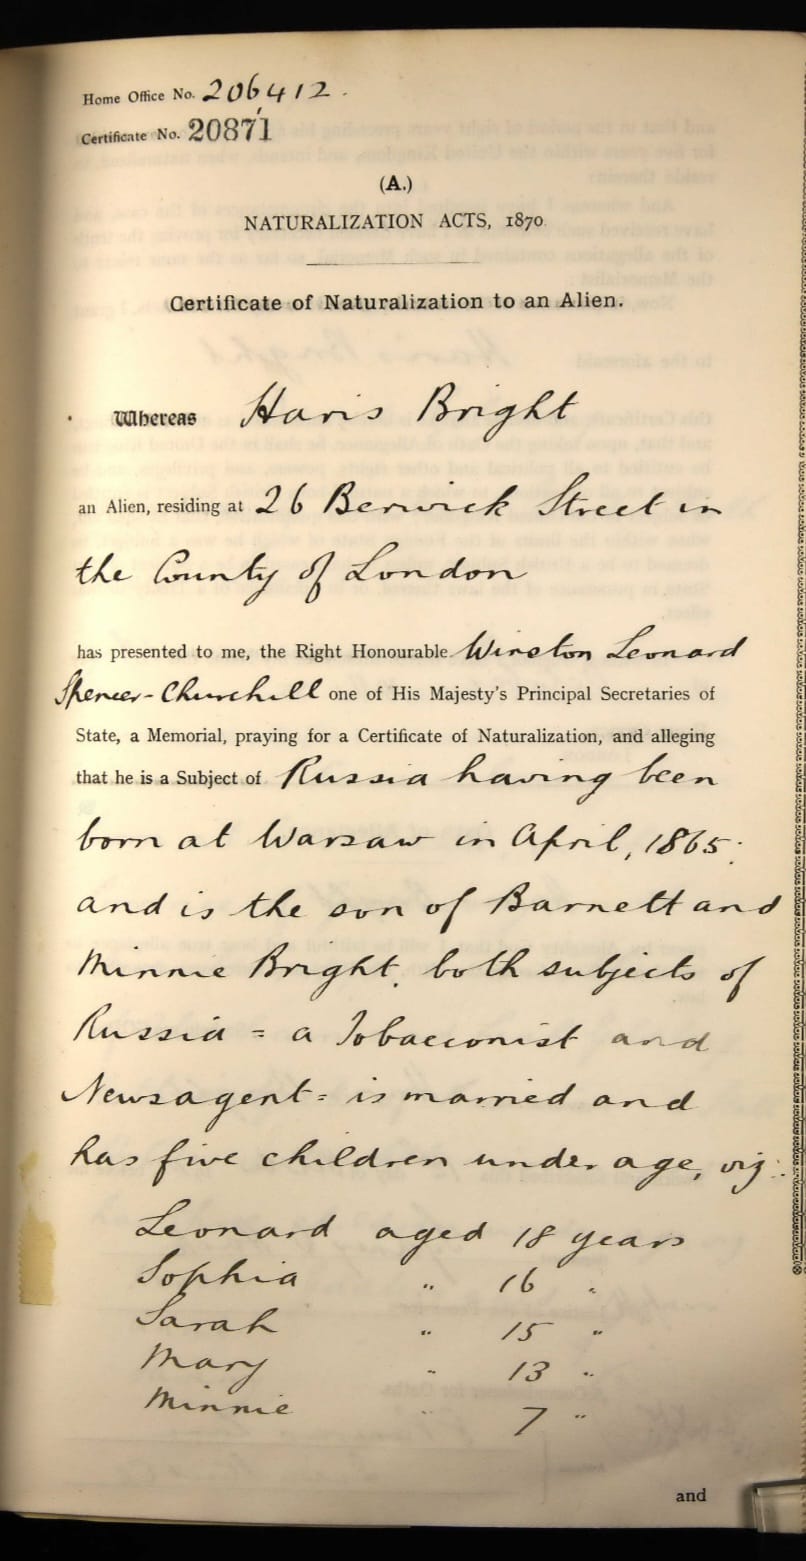 Home Office No. 206412.
Certificate No. 20871
(A.)
NATURALIZATION ACTS, 1870.
Certificate of Naturalization to an Alien.
Whereas Haris Bright
an Alien, residing at 26 Berwick Street in
the County of London
has presented to me, the Right Honourable Winston Leonard
Spencer-Churchill one of His Majesty's Principal Secretaries of
State, a Memorial, praying for a Certificate of Naturalization, and alleging
that he is a Subject of Russia having been
born at Warsaw in April, 1865;
and is the son of Barnett and
Minnie Bright, both subjects of
Russia = a Tobacconist and
Newsagent = is married and
has five children under age, viz:
Leonard aged 18 years
Sophia " 16 "
Sarah " 15 "
Mary " 13 "
Minnie " 7 "
and